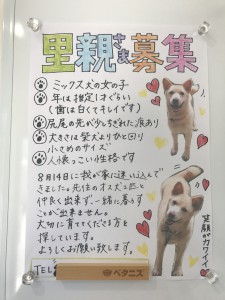 里親さま募集
ミックス犬の女の子
年は推定1才ぐらい
(歯は白くてキレイです)
尻尾の先が少しちぎれた痕あり
大きさは柴犬よりひと回り
小さめのサイズ
人懐っこい性格です
8月14日に我が家に迷い込んで
きました。先住のオス犬と
仲良く出来ず一緒に暮らす
ことが出来ません。
大切に育ててくださる方を
探しています。
よろしくお願い致します。
笑顔がカワイイ
TEL
ペタニス